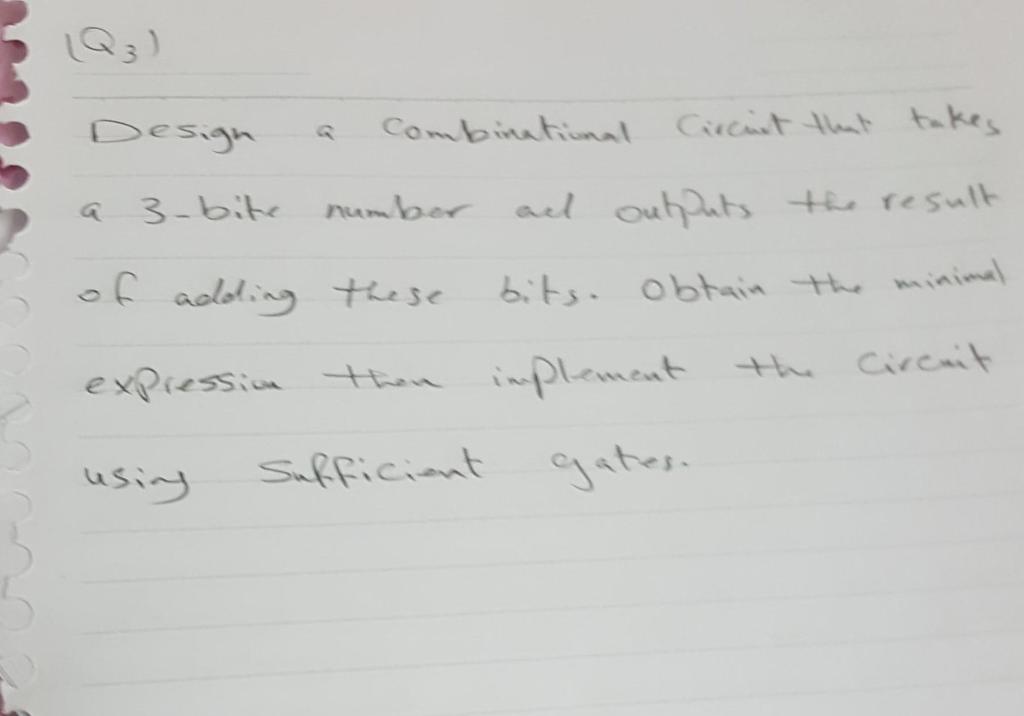 (Q3)
Design a Combinational Circuit that takes
a 3-bite number ad outputs the result
of adding these bits. Obtain the minimal
expression then implement the circuit
using sufficient gates.